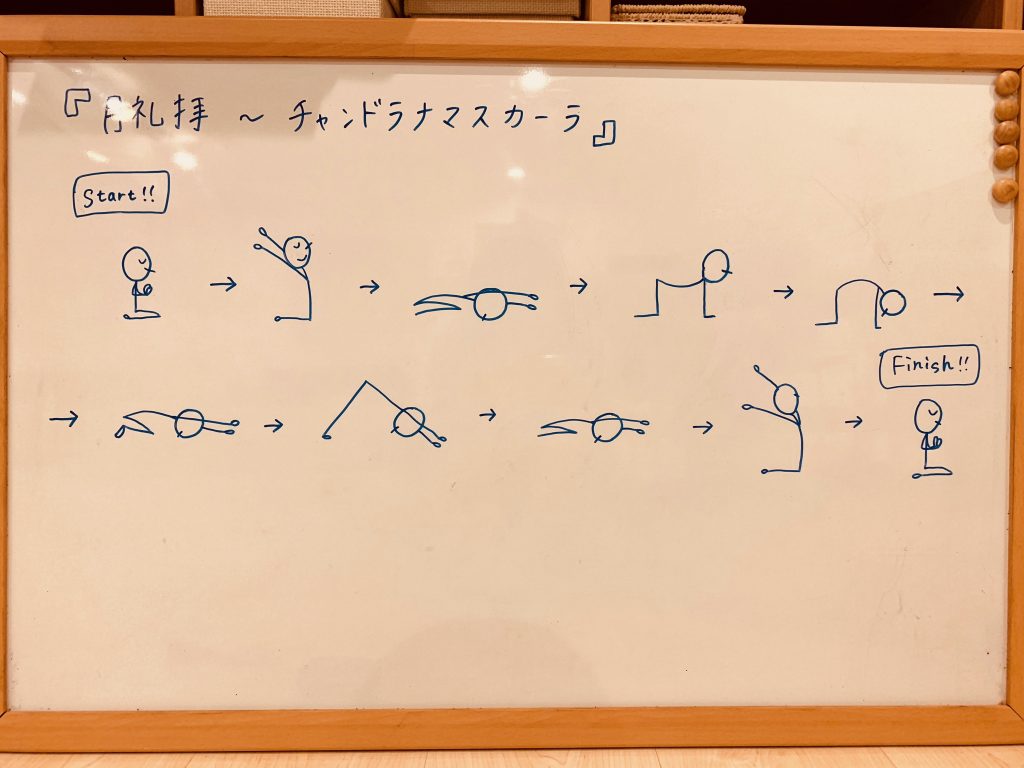 『月礼拝 〜 チャンドラナマスカーラ』
Start!!
Finish!!